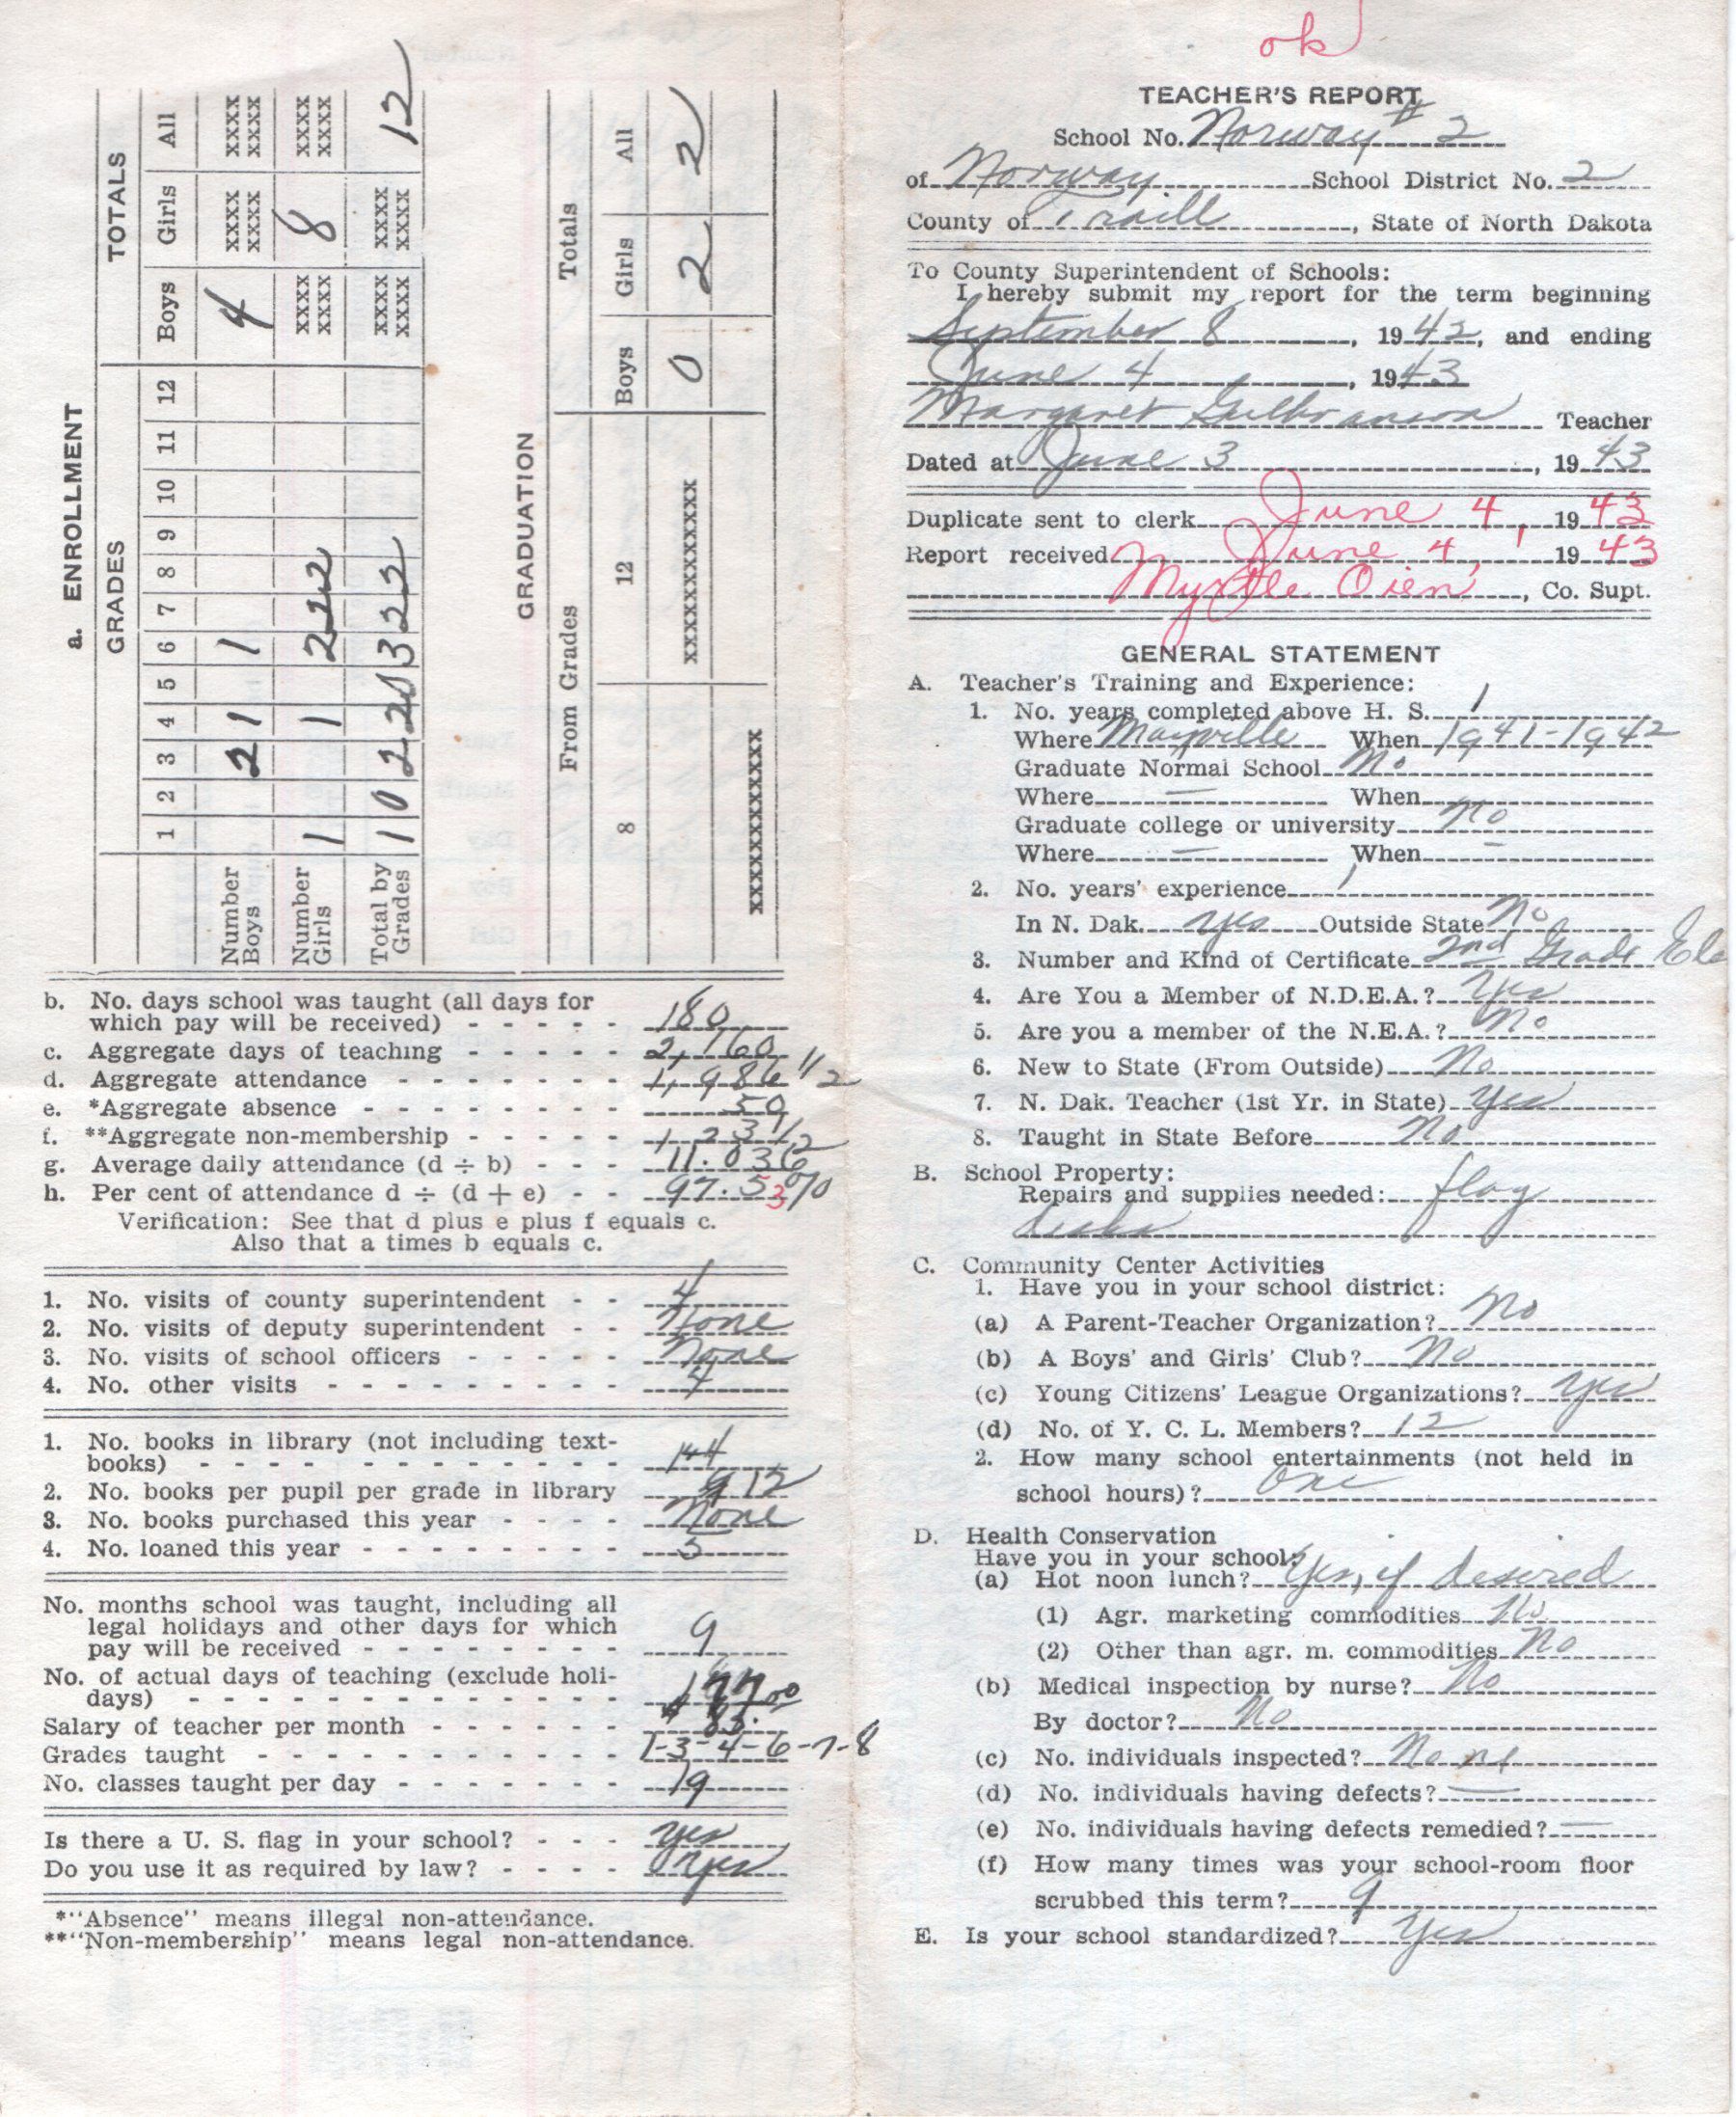 a. ENROLLMENT
GRADES TOTALS
1 2 3 4 5 6 7 8 9 10 11 12 Boys Girls All
Number Boys 2 1 1 4 xxxx xxxx xxxx xxxx
Number Girls 1 1 2 2 2 xxxx xxxx 8 xxxx xxxx
Total by Grades 1 0 2 2 0 3 2 2 xxxx xxxx xxxx xxxx 12
GRADUATION
From Grades Totals
8 12 Boys Girls All
xxxxxxxxxxxxx 0 2 2
xxxxxxxxxxxxx
b. No. days school was taught (all days for
which pay will be received) - - - - - 180
c. Aggregate days of teaching - - - - - 2,160
d. Aggregate attendance - - - - - - - 1,986 1/2
e. *Aggregate absence - - - - - - - 50
f. **Aggregate non-membership - - - - - 123 1/2
g. Average daily attendance (d ÷ b) - - - 11.036
h. Per cent of attendance d ÷ (d + e) - - 97.53%
Verification: See that d plus e plus f equals c.
Also that a times b equals c.
1. No. visits of county superintendent - - 4
2. No. visits of deputy superintendent - - None
3. No. visits of school officers - - - - - None
4. No. other visits - - - - - - - - 4
1. No. books in library (not including text-
books) - - - - - - - - - - 144
2. No. books per pupil per grade in library 12
3. No. books purchased this year - - - - None
4. No. loaned this year - - - - - - - 5
No. months school was taught, including all
legal holidays and other days for which
pay will be received - - - - - - - - 9
No. of actual days of teaching (exclude holi-
days) - - - - - - - - - - - 177
Salary of teacher per month - - - - - $ 85.00
Grades taught - - - - - - - - - 1-3-4-6-7-8
No. classes taught per day - - - - - - 19
Is there a U. S. flag in your school? - - - yes
Do you use it as required by law? - - - - yes
*"Absence" means illegal non-attendance.
**"Non-membership" means legal non-attendance.
ok
TEACHER'S REPORT
School No. Norway # 2
of Norway School District No. 2
County of Traill, State of North Dakota
To County Superintendent of Schools:
I hereby submit my report for the term beginning
September 8, 1942, and ending
June 4, 1943
Margaret Gulbranson Teacher
Dated at June 3, 1943
Duplicate sent to clerk June 4, 1943
Report received June 4, 1943
Myrtle Oien, Co. Supt.
GENERAL STATEMENT
A. Teacher's Training and Experience:
1. No. years completed above H. S. 1
Where Mayville When 1941-1942
Graduate Normal School No
Where — When
Graduate college or university No
Where — When —
2. No. years' experience 1
In N. Dak. yes Outside State No
3. Number and Kind of Certificate 2nd Grade Ele
4. Are You a Member of N.D.E.A.? Yes
5. Are you a member of the N.E.A.? No
6. New to State (From Outside) No
7. N. Dak. Teacher (1st Yr. in State) Yes
8. Taught in State Before No
B. School Property:
Repairs and supplies needed: flag
desks
C. Community Center Activities
1. Have you in your school district:
(a) A Parent-Teacher Organization? No
(b) A Boys' and Girls' Club? No
(c) Young Citizens' League Organizations? yes
(d) No. of Y. C. L. Members? 12
2. How many school entertainments (not held in
school hours)? One
D. Health Conservation
Have you in your school:
(a) Hot noon lunch? Yes, if desired
(1) Agr. marketing commodities No
(2) Other than agr. m. commodities No
(b) Medical inspection by nurse? No
By doctor? No
(c) No. individuals inspected? None
(d) No. individuals having defects? —
(e) No. individuals having defects remedied? —
(f) How many times was your school-room floor
scrubbed this term? 9
E. Is your school standardized? Yes